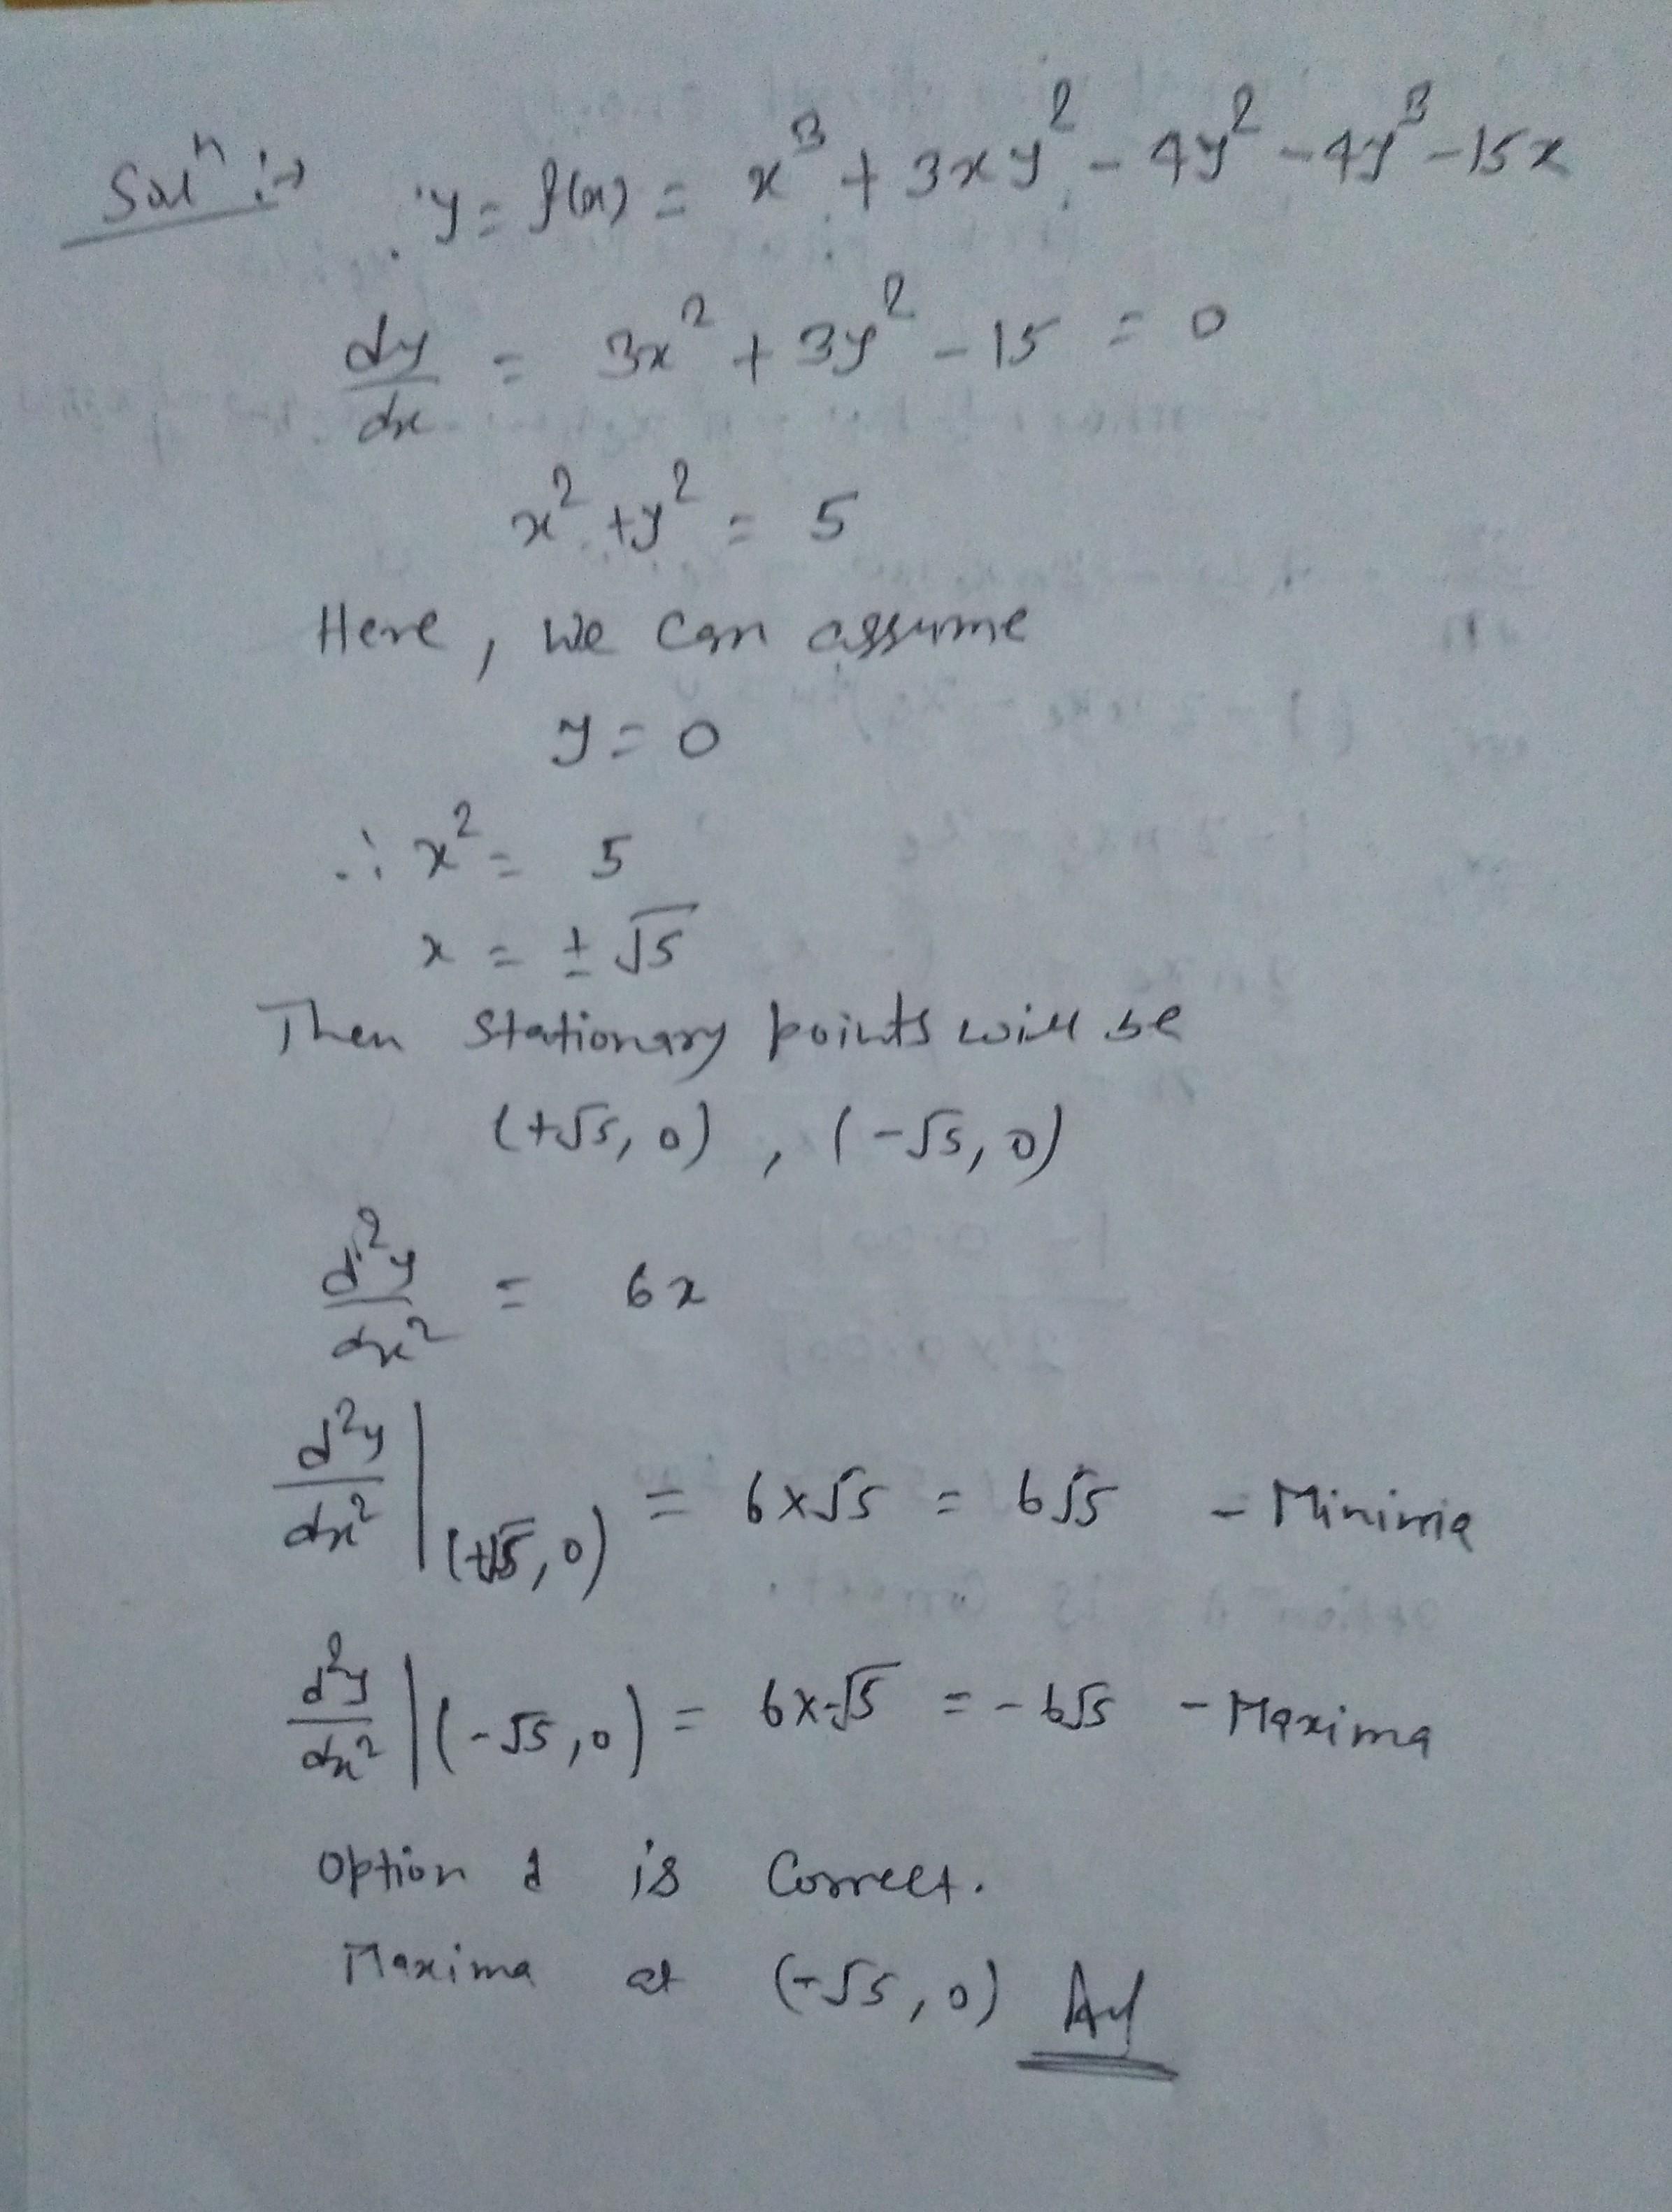 Solⁿ :→ ∴ y = f(x) = x³ + 3xy² - 4y² - 4y³ - 15x
dy/dx = 3x² + 3y² - 15 = 0
x² + y² = 5
Here, we can assume
y = 0
∴ x² = 5
x = ± √5
Then stationary points will be
(+√5, 0) , (-√5, 0)
d²y/dx² = 6x
d²y/dx² |(+√5, 0) = 6×√5 = 6√5 - Minima
d²y/dx² |(-√5, 0) = 6×-√5 = -6√5 - Maxima
Option d is Correct.
Maxima at (-√5, 0)